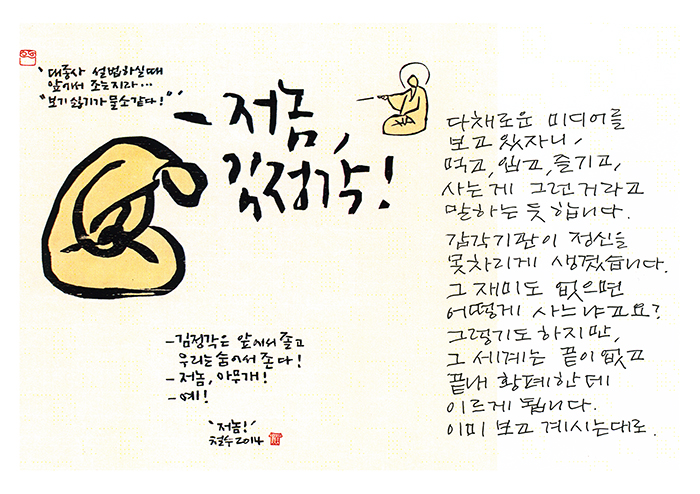 "대종사 설법하실때
앞에서 조는지라...
"보기싫기가 물소같다!"
- 저놈,
김정각!
- 김정각은 앞에서 졸고
우리는 숨어서 존다!
- 저놈, 아무개!
- 예!
"저놈!"
철수 2014
다채로운 미디어를
보고 있자니,
먹고, 입고, 즐기고,
사는게 그런거라고
말하는 듯 합니다.
감각기관이 정신을
못차리게 생겼습니다.
그 재미도 없으면
어떻게 사느냐고요?
그렇기도 하지만,
그 세계는 끝이 없고
끝내 황폐한 데
이르게 됩니다.
이미 보고 계시는대로.